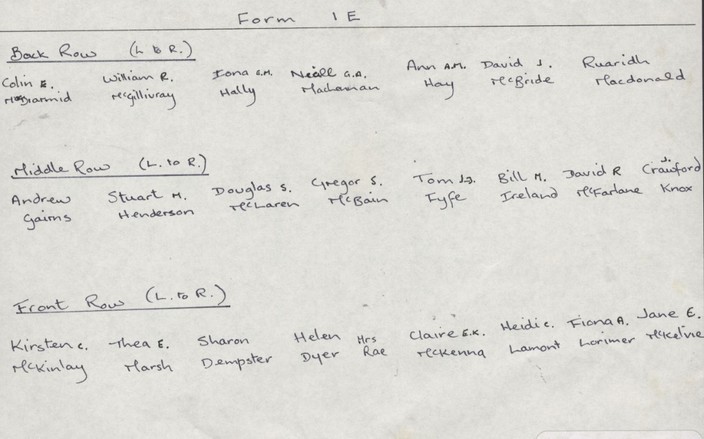 Form 1E
Back Row (L to R.)
Colin E. William R. Iona G.M. Niall G.A. Ann A.M. David J. Ruaridh
McDiarmid McGillivray Hally Maclennan Hay McBride Macdonald
Middle Row (L. to R.)
Andrew Stuart M. Douglas S. Gregor S. Tom David R Bill M. Crawford J.
Gairns Henderson McLaren McBain Fyfe Ireland McFarlane Knox
Front Row (L. to R.)
Kirsten C. Thea E. Sharon Helen Mrs Claire E.K. Heidi C. Fiona A. Jane E.
McKinlay Marsh Dempster Dyer Rae McKenna Lamont Lorimer McKelvie